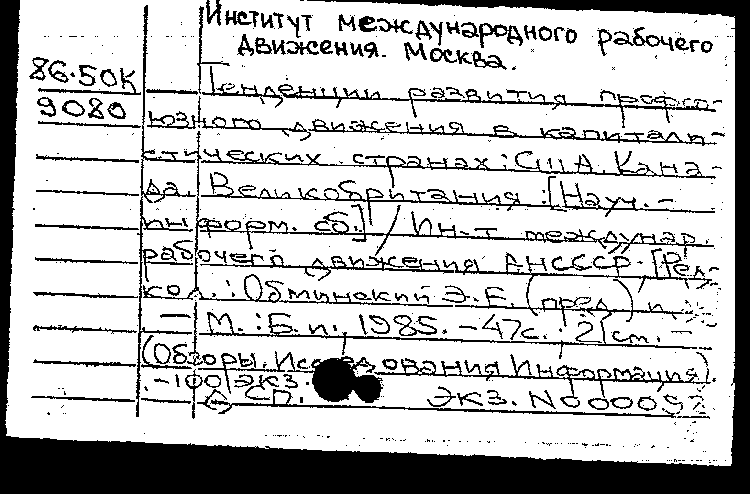 Институт международного рабочего
движения. Москва.
86.50К
9080
Тенденции развития профсо-
юзного движения в капитали-
стических странах: США. Кана-
да. Великобритания: [Науч.-
информ. сб.] / Ин-т междунар.
рабочего движения АНСССР. [Ред-
кол.: Обминский Э.Е. (пред) и
- М.: Б.и., 1985. - 47с.; 21см. -
(Обзоры. Исследования Информация).
. - 100 экз.
ДСП. ЭКЗ. N 000